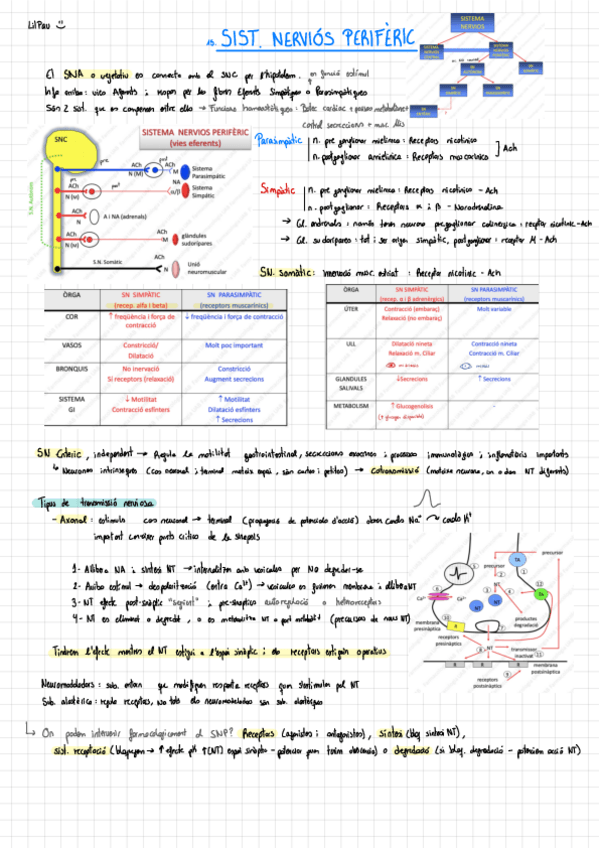 LilPau
15. SIST. NERVIÓS PERIFÈRIC
SISTEMA NERVIOS
SISTEMA NERVIOS CENTRAL
SISTEMA NERVIOS PERIFERIC
SN AUTONOM
SN SOMATIC
SN SIMPATIC
SN PARASIMPATIC
El SNA o vegetatiu es connecta amb el SNC per l'hipotàlem.
Són 2 sist. que es compensen entre ells → Funcions homeostàtiques: Batec cardíac + processos metabòlics
control secrecions + musc. llis
SNC
SISTEMA NERVIOS PERIFÈRIC
(vies eferents)
S.N. Autònom
pre
post
ACh
N (M)
ACh
M
Sistema Parasimpàtic
ACh
N (M)
NA
α/β
Sistema Simpàtic
ACh
N
A i NA (adrenals)
ACh
N (M)
ACh
M
glàndules sudorípares
S.N. Somàtic
ACh
N
Unió neuromuscular
Parasimpàtic
n. pre ganglionar mielínica: Receptors nicotínics
n. postganglionar amielínica: Receptors muscarínics
Ach
Simpàtic
n. pre ganglionar mielínica: Receptors nicotínics - Ach
n. postganglionar: Receptors α i β - Noradrenalina
→ Gl. adrenals: només tenen neurona preganglionar colinèrgica: receptor nicotínic - Ach
→ Gl. sudorípares: tot i ser origen simpàtic, postganglionar: receptor M - Ach
SN. somàtic: innervació musc. estriat: Receptor nicotínic - Ach
ÒRGA
SN SIMPÀTIC
(recep. alfa i beta)
SN PARASIMPÀTIC
(receptors muscarínics)
COR
↑ freqüència i força de contracció
↓ freqüència i força de contracció
VASOS
Constricció/
Dilatació
Molt poc important
BRONQUIS
No inervació
Si receptors (relaxació)
Constricció
Augment secrecions
SISTEMA GI
↓ Motilitat
Contracció esfínters
↑ Motilitat
Dilatació esfínters
↑ Secrecions
ÒRGA
SN SIMPÀTIC
(recep. α i β adrenèrgics)
SN PARASIMPÀTIC
(receptors muscarínics)
ÚTER
Contracció (embaràs)
Relaxació (no embaràs)
Molt variable
ULL
Dilatació nineta
Relaxació m. Ciliar
Contracció nineta
Contracció m. Ciliar
GLANDULES SALIVALS
↓Secrecions
↑ Secrecions
METABOLISM
↑ Glucogenolisis
-
SN Entèric, independent → Regula la motilitat gastrointestinal, secrecions exocrines i processos immunològics i inflamatoris importants
↳ Neurones intrínseques (cos neuronal i terminal mateix espai, són curtes i petites) → Cotransmissió (mateixa neurona, on a don NT diferents)
Tipus de transmissió nerviosa
- Axonal: estímula cos neuronal → terminal (propagació de potencials d'acció) obren canals Na⁺
important conèixer parts crítics de la sinapsis
2- Arriba estímul → despolarització (entra Ca²⁺) → vesícules es fusionen membrana i alliberen NT
3- NT efecte post-sinàptic "següent" i pre-sinàptic autoreceptors o heteroreceptors
4- NT es eliminat o degradat, o es metabolitza NT o part metabòlit (precursors de nous NT)
Tindrem l'efecte mentres el NT estigui a l'espai sinàptic i els receptors estiguin operatius
Neuromoduladors: sub. endògenes que modifiquen resposta receptors quan s'estimulen pel NT
Sub. al·lostèrica: regula receptors, No tots els neuromoduladors són sub. al·lostèriques
↳ On podem intervenir farmacològicament el SNP? Receptors (agonistes i antagonistes), síntesi (bloq síntesi NT),
sist. recaptació (bloquegem → ↑ efecte pq ↑ [NT] espai sinàptic - potenciar quan tenim deficiència) o degradació (si bloq. degradació - potenciem acció NT)
precursor
precursor
TA
NT
NT
NT
De
Ca²⁺
Ca²⁺
productes degradació
membrana presinàptica
R
receptors presinàptics
NT
transmissor inactivat
R
R
R
R
membrana postsinàptica
receptors postsinàptics